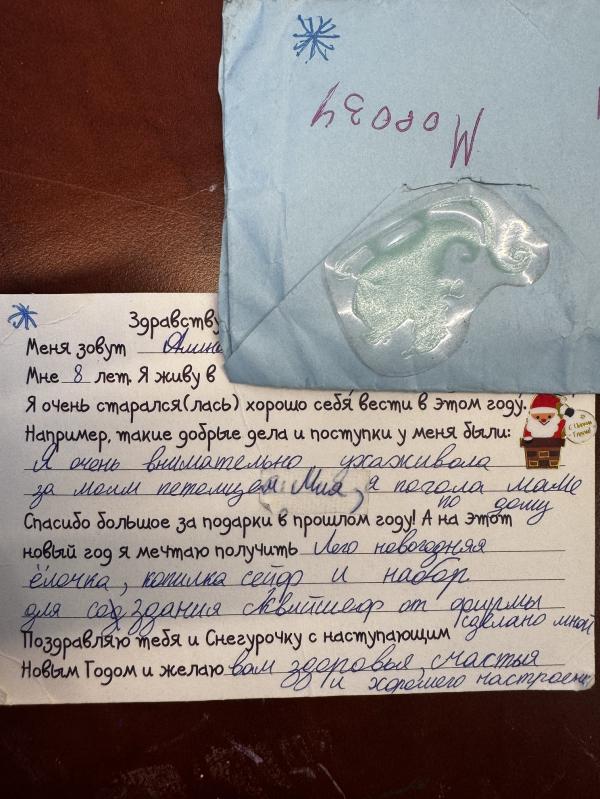 Морозу
Здравству
Меня зовут Алина
Мне 8 лет. Я живу в
Я очень старался(лась) хорошо себя вести в этом году.
Например, такие добрые дела и поступки у меня были:
Я очень внимательно ухаживола
за моим петомцем Мия, я погола маме
по дому
Спасибо большое за подарки в прошлом году! А на этот
новый год я мечтаю получить Лего новогодняя
ёлочка, копилка сейф и набор
для создздания сквишеф от фирмы
сделано мной
Поздравляю тебя и Снегурочку с наступающим
Новым Годом и желаю вам здоровья, счастья
и хорошего настроени